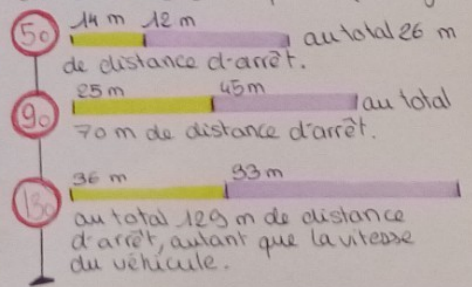 50 14 m 12 m au total 26 m
de distance d'arrêt.
25 m 45 m
90 au total
70 m de distance d'arrêt.
36 m 93 m
130
au total 129 m de distance
d'arrêt, autant que la vitesse
du véhicule.